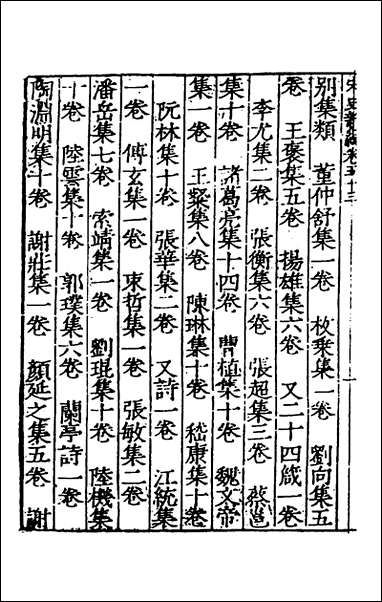 宋史新編卷五十三
別集類　董仲舒集一卷　枚乘集一卷　劉向集五
卷　王褒集五卷　揚雄集六卷　又二十四箴一卷
李尤集二卷　張衡集六卷　張超集三卷　蔡邕
集十卷　諸葛亮集十四卷　曹植集十卷　魏文帝
集一卷　王粲集八卷　陳琳集十卷　嵇康集十卷
阮林集十卷　張華集二卷　又詩一卷　江統集
一卷　傅玄集一卷　束晳集一卷　張敏集二卷
潘岳集七卷　索靖集一卷　劉琨集十卷　陸機集
十卷　陸雲集十卷　郭璞集六卷　蘭亭詩一卷
陶淵明集十卷　謝莊集一卷　顏延之集五卷　謝